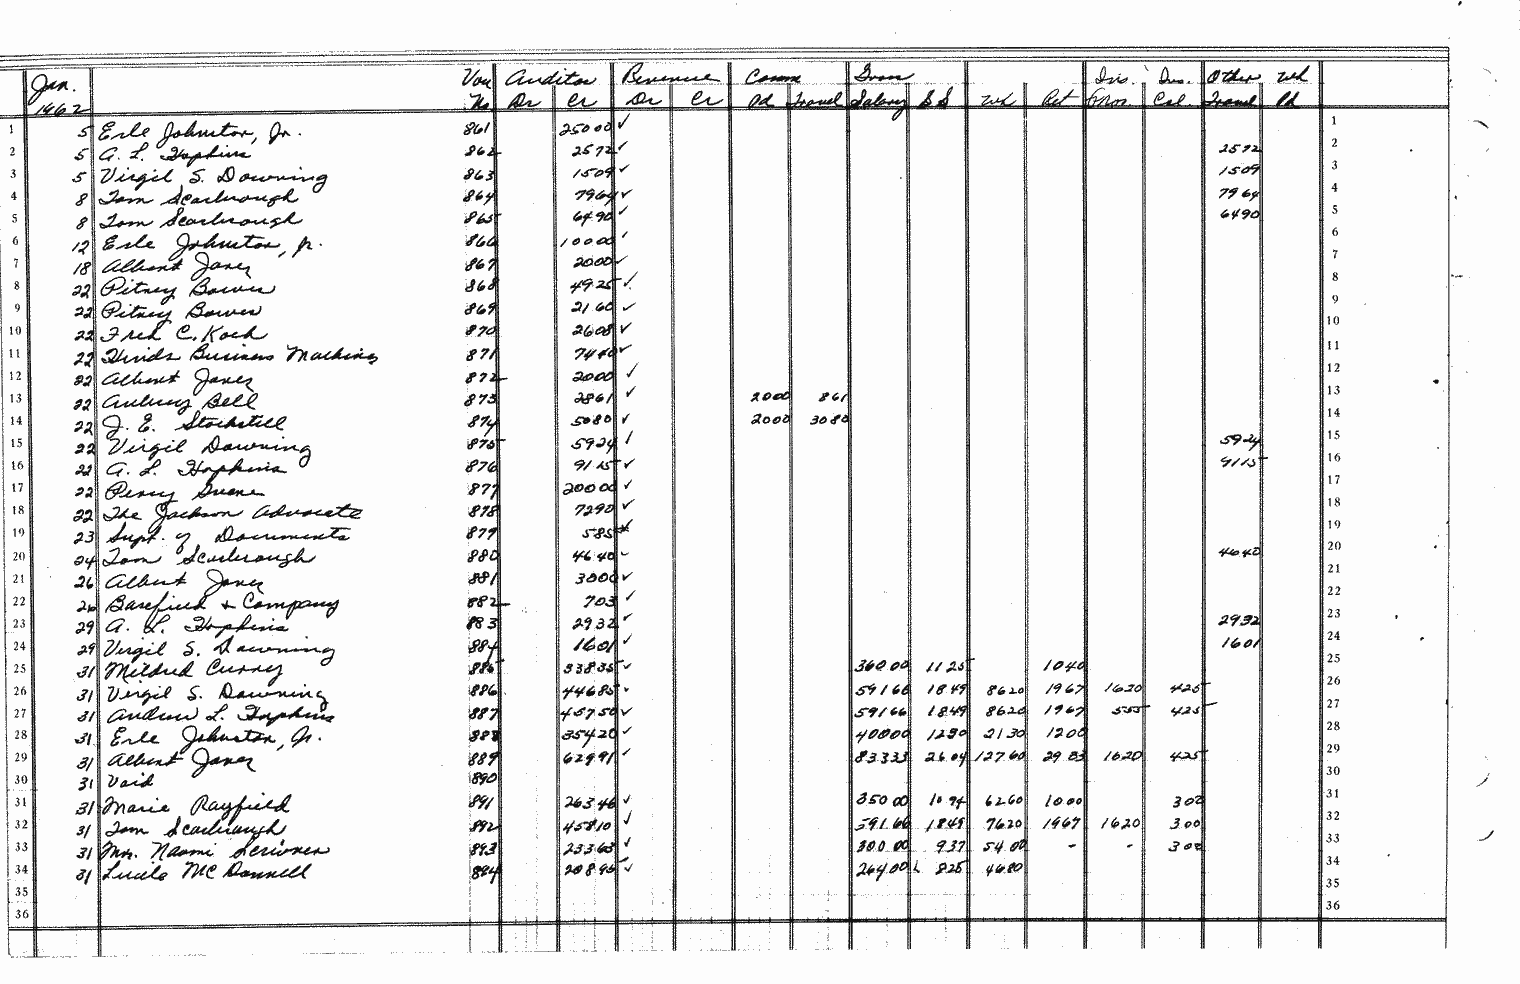 Jan. Vou Auditor Revenue Comm Gross Ins. Ins. Other Wh
1962 No. Dr Cr Dr Cr Pd Travel Salary S S Wh Ret Gross Col. Travel Pd
1 5 Erle Johnston, Jr. 861 250 00 ✓ 1
2 5 A. L. Hopkins 862 25 72 ✓ 25 72 2
3 5 Virgil S. Downing 863 15 09 ✓ 15 09 3
4 8 Tom Scarbrough 864 79 64 ✓ 79 64 4
5 8 Tom Scarbrough 865 64 90 ✓ 64 90 5
6 12 Erle Johnston, Jr. 866 100 00 ✓ 6
7 18 Albert Jones 867 20 00 ✓ 7
8 22 Pitney Bowes 868 49 25 ✓ 8
9 22 Pitney Bowes 869 21 60 ✓ 9
10 22 Fred C. Koch 870 26 08 ✓ 10
11 22 Hinds Business Machines 871 74 40 ✓ 11
12 22 Albert Jones 872 20 00 ✓ 12
13 22 Aubrey Bell 873 28 61 ✓ 20 00 8 61 13
14 22 J. E. Stockstill 874 50 80 ✓ 20 00 30 80 14
15 22 Virgil Downing 875 59 24 ✓ 59 24 15
16 22 A. L. Hopkins 876 91 15 ✓ 91 15 16
17 22 Percy Greene 877 200 00 ✓ 17
18 22 The Jackson Advocate 878 72 90 ✓ 18
19 23 Supt. of Documents 879 5 85 19
20 24 Tom Scarbrough 880 46 40 ✓ 46 40 20
21 26 Albert Jones 881 30 00 ✓ 21
22 26 Barefield + Company 882 7 03 ✓ 22
23 29 A. L. Hopkins 883 29 32 ✓ 29 32 23
24 29 Virgil S. Downing 884 16 01 ✓ 16 01 24
25 31 Mildred Curry 885 338 35 ✓ 360 00 11 25 10 40 25
26 31 Virgil S. Downing 886 446 85 591 66 18 49 86 20 19 67 16 20 4 25 26
27 31 Andrew L. Hopkins 887 457 50 ✓ 591 66 18 49 86 20 19 67 5 55 4 25 27
28 31 Erle Johnston, Jr. 888 354 20 ✓ 400 00 12 50 21 30 12 00 28
29 31 Albert Jones 889 629 91 ✓ 833 33 26 04 127 60 29 33 16 20 4 25 29
30 31 Void 890 30
31 31 Marie Rayfield 891 263 46 ✓ 350 00 10 94 62 60 10 00 3 00 31
32 31 Tom Scarbrough 892 458 10 ✓ 591 66 18 49 76 20 19 67 16 20 3 00 32
33 31 Mrs. Naomi Scrivner 893 233 63 ✓ 300 00 9 37 54 00 - - 3 00 33
34 31 Lucile McDonnell 894 208 95 ✓ 264 00 8 25 46 80 34
35 35
36 36